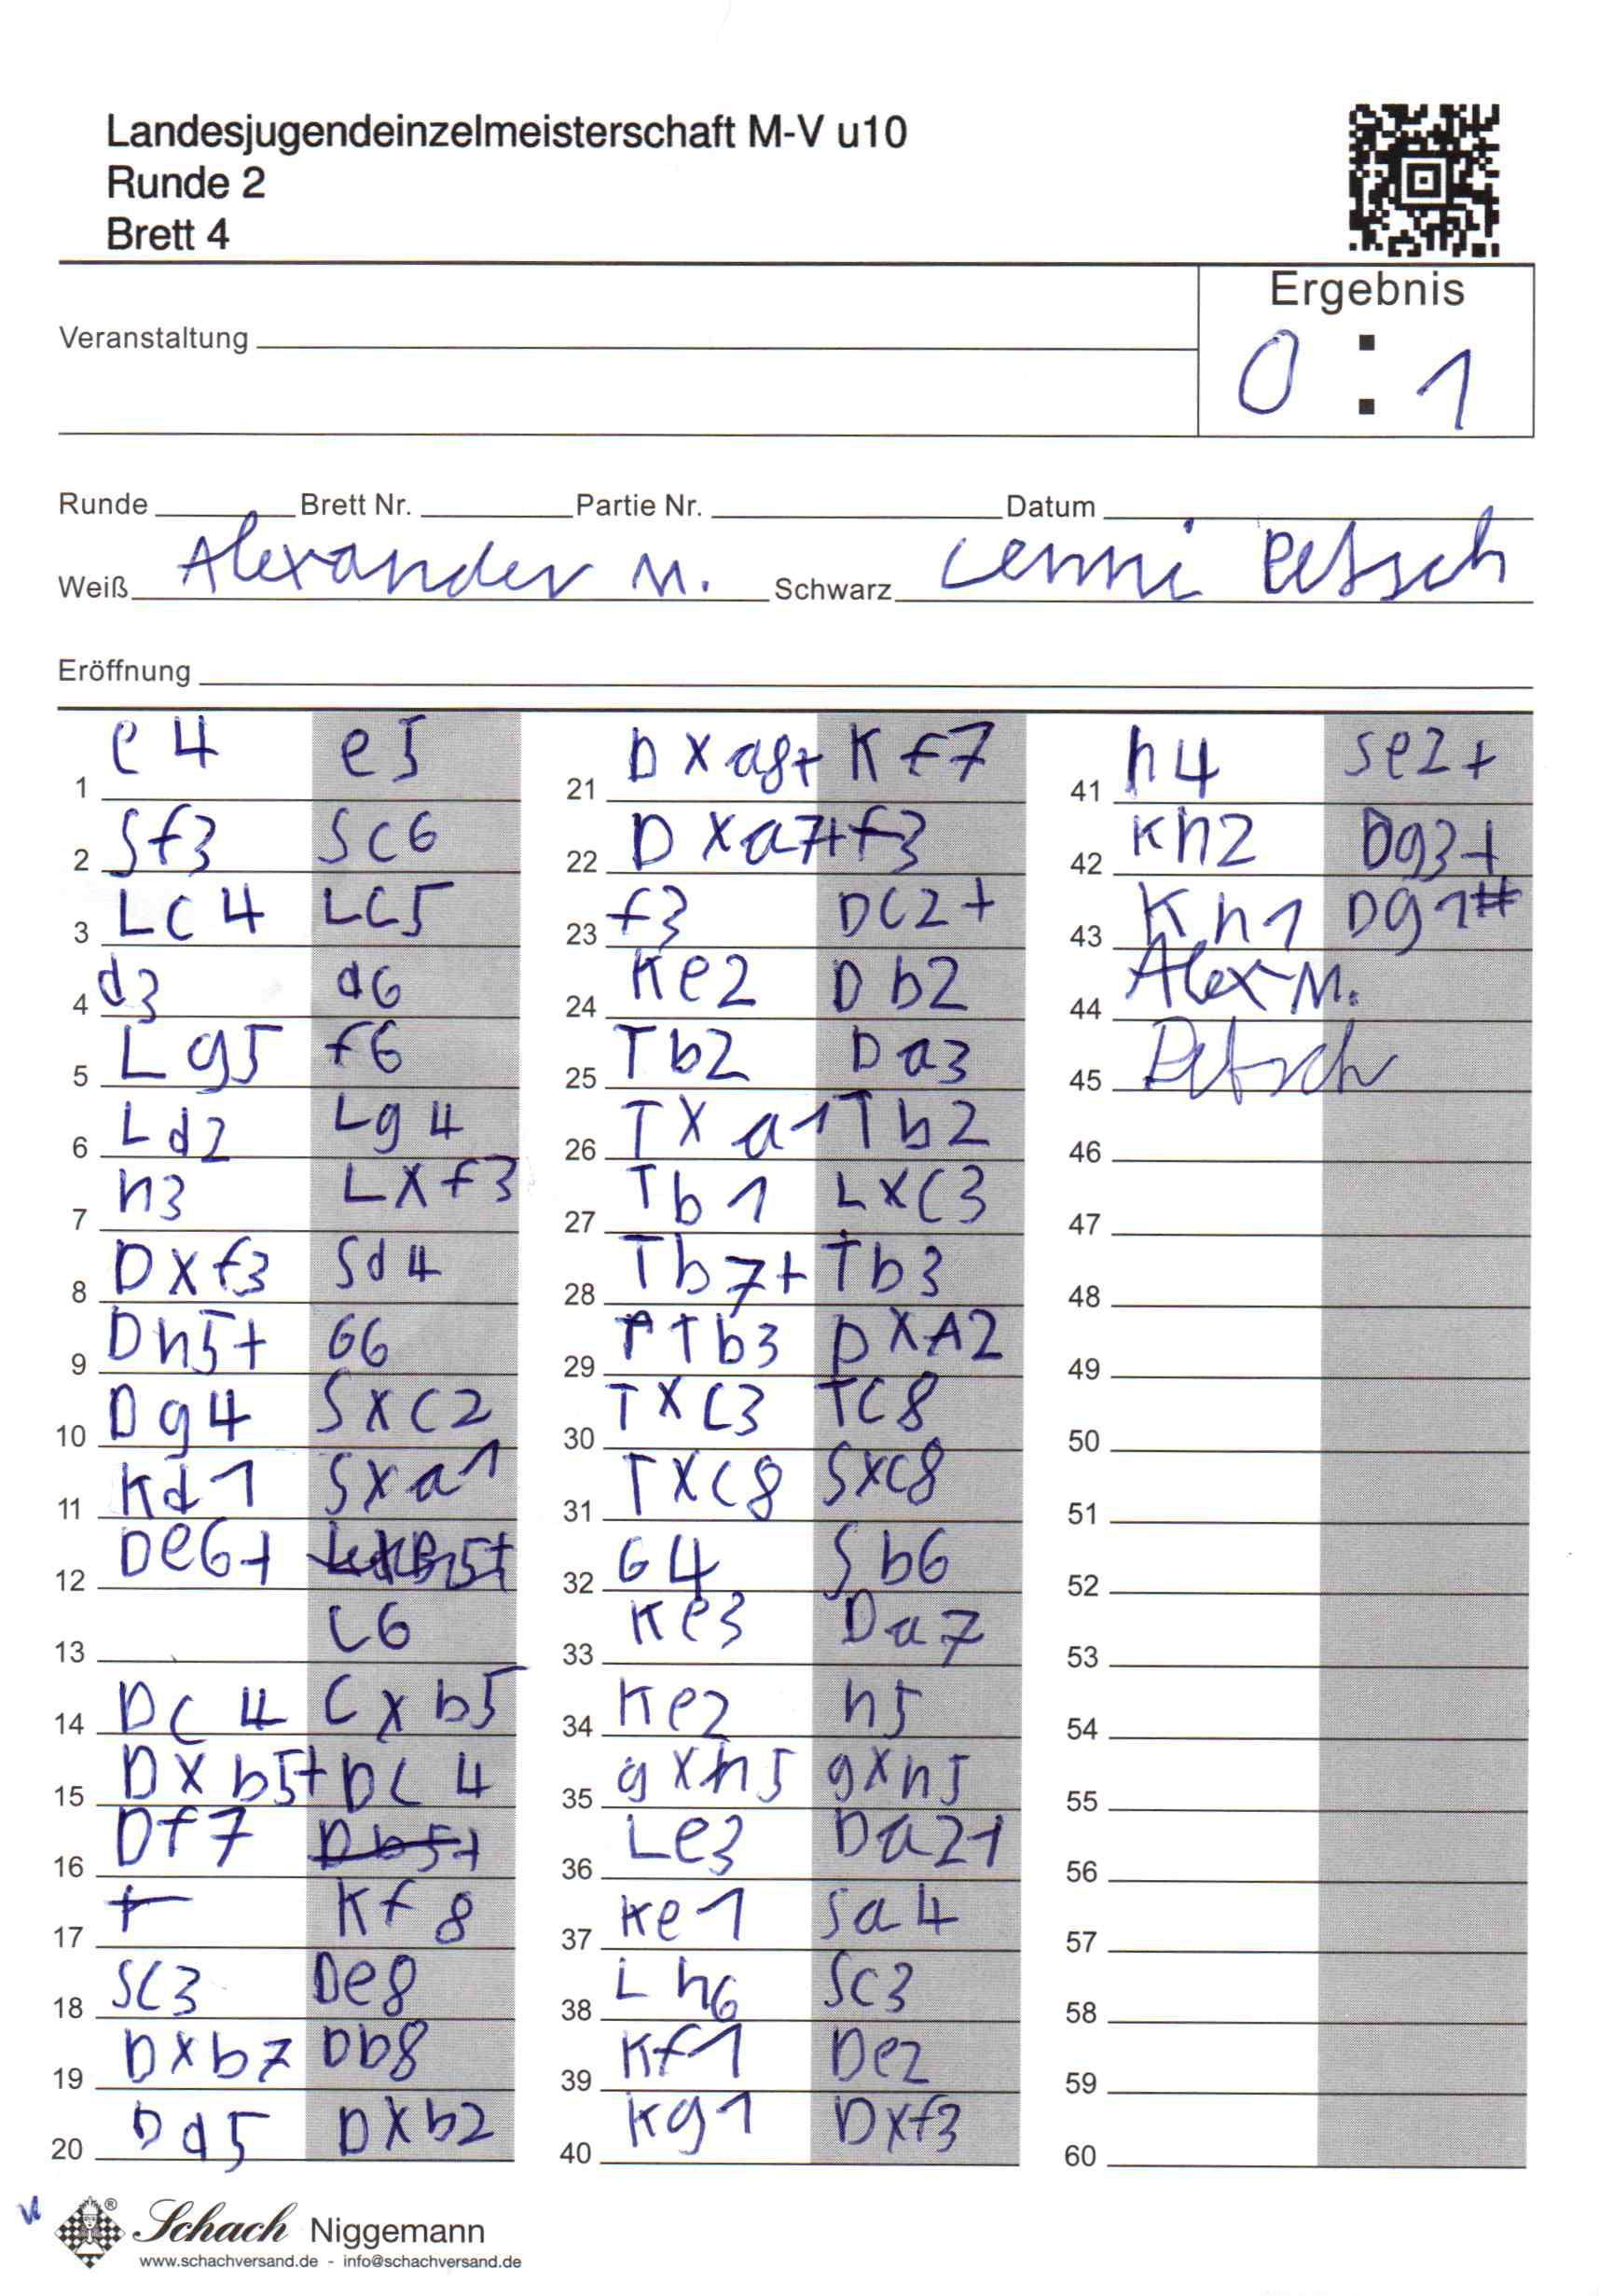 Landesjugendeinzelmeisterschaft M-V u10
Runde 2
Brett 4
Ergebnis
0 : 1
Veranstaltung
Runde Brett Nr. Partie Nr. Datum
Weiß Alexander M. Schwarz Lenni Petsch
Eröffnung
1 e4 e5
2 Sf3 Sc6
3 Lc4 Lc5
4 d3 d6
5 Lg5 f6
6 Ld2 Lg4
7 h3 Lxf3
8 Dxf3 Sd4
9 Dh5+ G6
10 Dg4 Sxc2
11 Kd1 Sxa1
12 De6+
13 c6
14 Dc4 Cxb5
15 Dxb5+ Dc4
16 Df7 Db5+
17 + Kf8
18 Sc3 De8
19 Dxb7 Db8
20 Dd5 Dxb2
21 Dxa8+ Kf7
22 Dxa7+ f3
23 f3 Dc2+
24 Ke2 Db2
25 Tb2 Da3
26 Txa1 Tb2
27 Tb1 Lxc3
28 Tb7+ Tb3
29 Tb3 DxA2
30 Txc3 Tc8
31 Txc8 Sxc8
32 G4 Sb6
33 Ke3 Da7
34 Ke2 h5
35 gxh5 gxh5
36 Le3 Da2+
37 Ke1 Sa4
38 Lh6 Sc3
39 Kf1 De2
40 Kg1 Dxf3
41 h4 Se2+
42 Kh2 Dg3+
43 Kh1 Dg1#
44 Alex M.
45 Petsch
46
47
48
49
50
51
52
53
54
55
56
57
58
59
60
Schach Niggemann
www.schachversand.de - info@schachversand.de